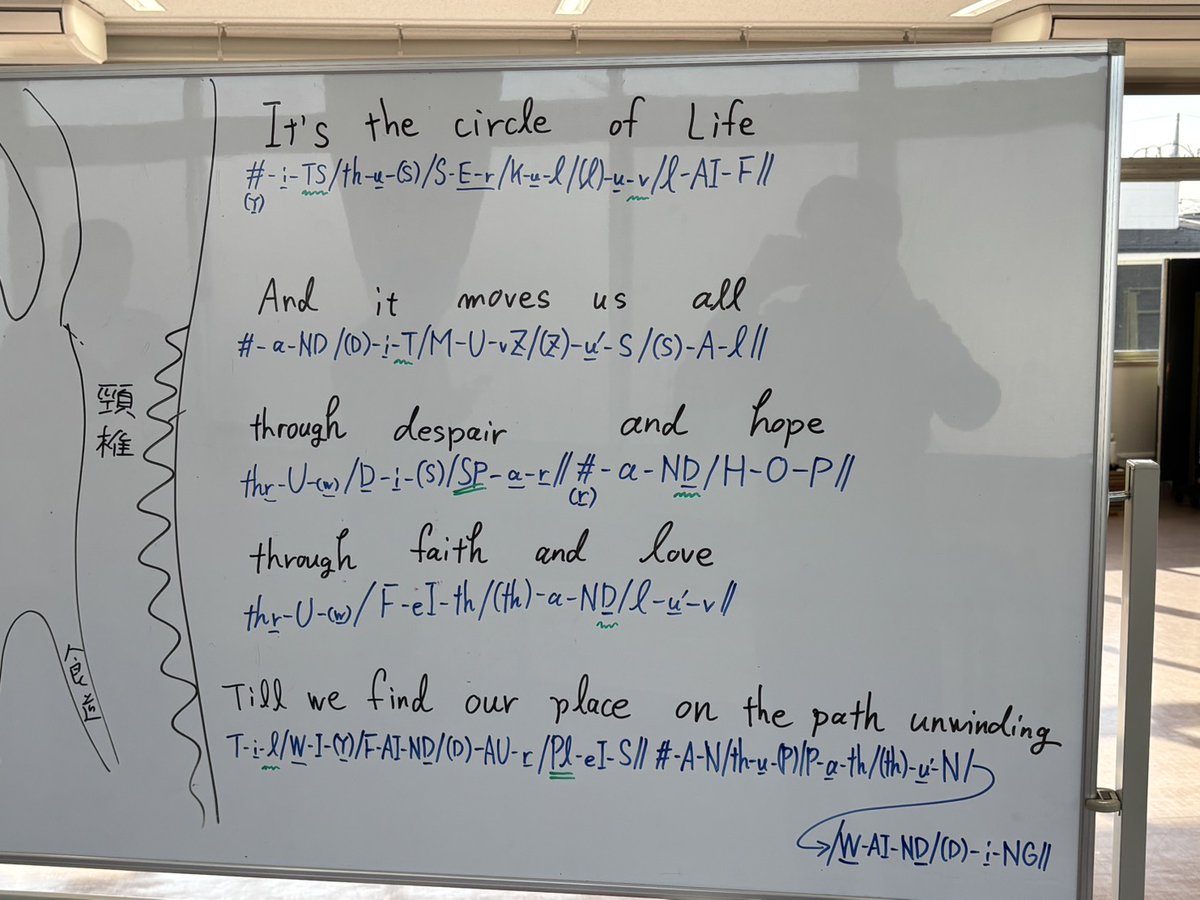 It's the circle of Life
#-i-TS/th-u-(S)/S-E-r/K-u-l/(l)-u-v/l-AI-F//
(Y)
And it moves us all
#-a-ND/(D)-i-T/M-U-vZ/(Z)-u'-S/(S)-A-l//
through despair and hope
thr-U-(w)/D-i-(S)/SP-a-r//#-a-ND/H-O-P//
(r)
through faith and love
thr-U-(w)/F-eI-th/(th)-a-ND/l-u'-v//
Till we find our place on the path unwinding
T-i-l/W-I-(Y)/F-AI-ND/(D)-AU-r/Pl-eI-S//#-A-N/th-u-(P)/P-a-th/(th)-u'-N/
/W-AI-ND/(D)-i-NG//
頸椎
食道